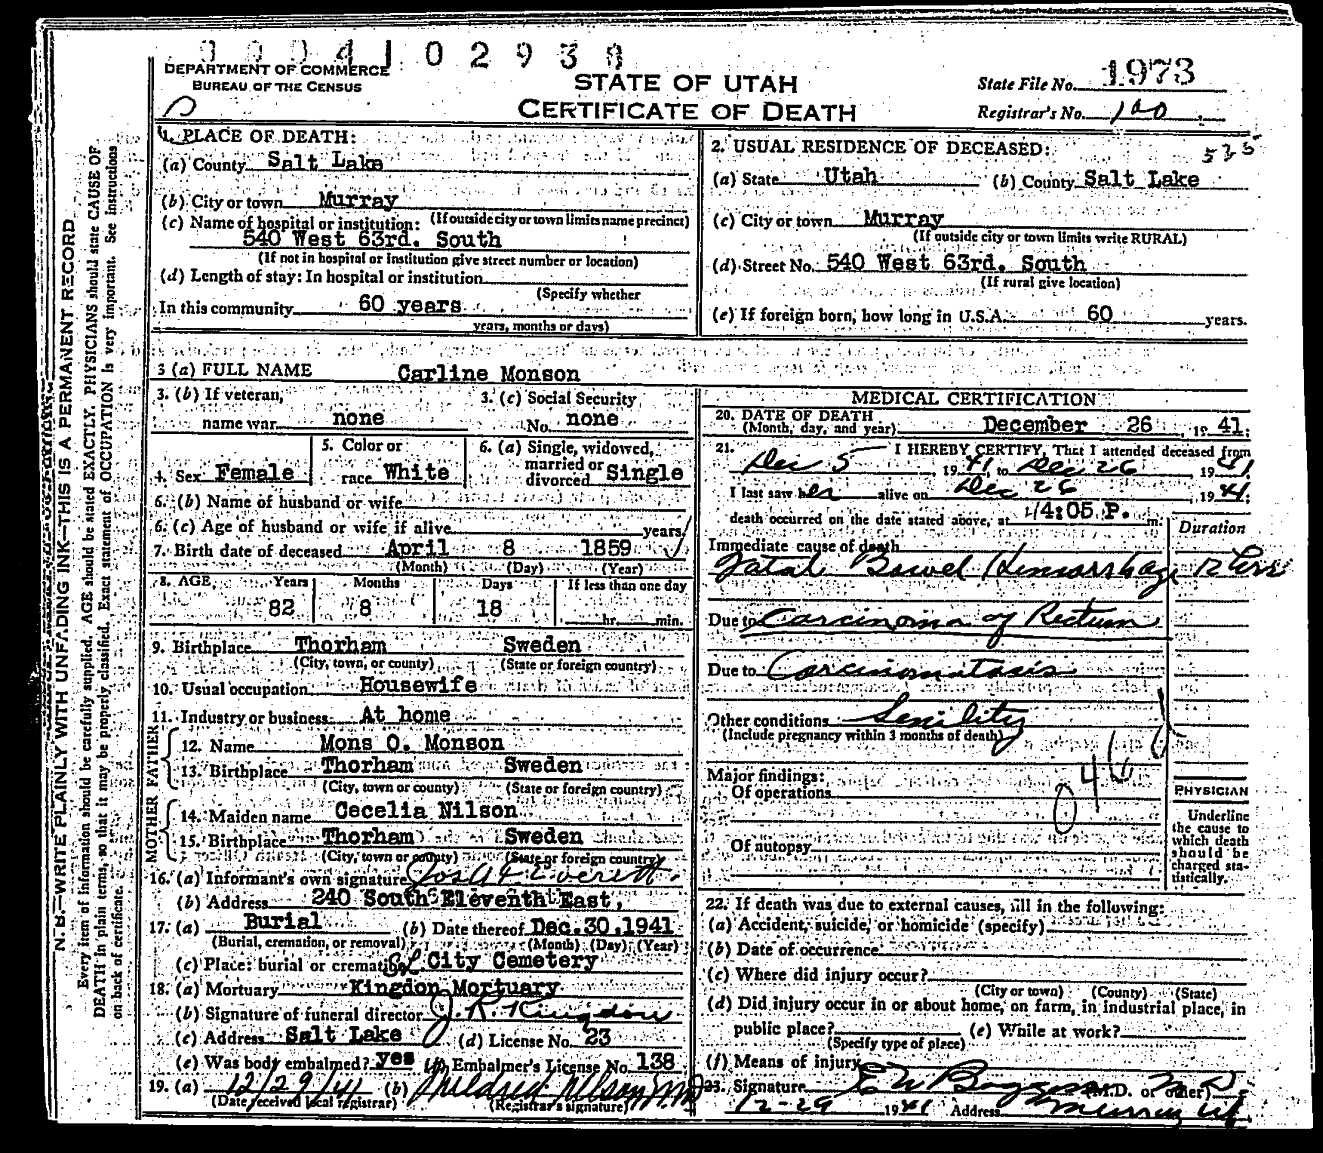 DEPARTMENT OF COMMERCE
BUREAU OF THE CENSUS
STATE OF UTAH
CERTIFICATE OF DEATH
State File No. 1973
Registrar's No. 100
1. PLACE OF DEATH:
(a) County Salt Lake
(b) City or town Murray
(c) Name of hospital or institution: (If outside city or town limits name precinct)
540 West 63rd. South
(If not in hospital or institution give street number or location)
(d) Length of stay: In hospital or institution
(Specify whether
In this community 60 years
years, months or days)
2. USUAL RESIDENCE OF DECEASED:
(a) State Utah (b) County Salt Lake
(c) City or town Murray
(If outside city or town limits write RURAL)
(d) Street No. 540 West 63rd. South
(If rural give location)
(e) If foreign born, how long in U.S.A. 60 years.
3 (a) FULL NAME Carline Monson
3. (b) If veteran,
name war none
3. (c) Social Security
No. none
4. Sex Female
5. Color or
race White
6. (a) Single, widowed,
married or
divorced Single
6. (b) Name of husband or wife
6. (c) Age of husband or wife if alive years
7. Birth date of deceased April 8 1859
(Month) (Day) (Year)
8. AGE Years Months Days If less than one day
82 8 18 hr. min.
9. Birthplace Thorham Sweden
(City, town, or county) (State or foreign country)
10. Usual occupation Housewife
11. Industry or business At home
FATHER
12. Name Mons O. Monson
13. Birthplace Thorham Sweden
(City, town or county) (State or foreign country)
MOTHER
14. Maiden name Cecelia Nilson
15. Birthplace Thorham Sweden
(City, town or county) (State or foreign country)
16. (a) Informant's own signature Everett
(b) Address 240 South Eleventh East,
17. (a) Burial (b) Date thereof Dec.30,1941
(Burial, cremation, or removal) (Month) (Day) (Year)
(c) Place: burial or cremation SL City Cemetery
18. (a) Mortuary Kingdon Mortuary
(b) Signature of funeral director J. R. Kingdon
(c) Address Salt Lake (d) License No. 23
(e) Was body embalmed? yes (f) Embalmer's License No. 138
19. (a) 12/29/41 (b) Mildred Nelson M.D.
(Date received local registrar) (Registrar's signature)
MEDICAL CERTIFICATION
20. DATE OF DEATH
(Month, day, and year) December 26, 1941.
21. I HEREBY CERTIFY, That I attended deceased from
Dec 5 1941 to Dec 26 1941
I last saw her alive on Dec 26, 1941;
death occurred on the date stated above, at 4:05 P. m.
Duration
Immediate cause of death
Fatal Bowel Hemorrhage 12 hrs
Due to Carcinoma of Rectum
Due to Carcinomatosis
Other conditions Senility
(Include pregnancy within 3 months of death)
Major findings:
Of operations
Of autopsy
PHYSICIAN
Underline
the cause to
which death
should be
charged sta-
tistically.
22. If death was due to external causes, fill in the following:
(a) Accident, suicide, or homicide (specify)
(b) Date of occurrence
(c) Where did injury occur?
(City or town) (County) (State)
(d) Did injury occur in or about home, on farm, in industrial place, in
public place? (e) While at work?
(Specify type of place)
(f) Means of injury
23. Signature (M.D. or other) M.D.
12-29 1941 Address Murray Ut
N. B.—WRITE PLAINLY WITH UNFADING INK—THIS IS A PERMANENT RECORD
Every item of information should be carefully supplied. AGE should be stated EXACTLY. PHYSICIANS should state CAUSE OF
DEATH in plain terms, so that it may be properly classified. Exact statement of OCCUPATION is very important. See Instructions
on back of certificate.